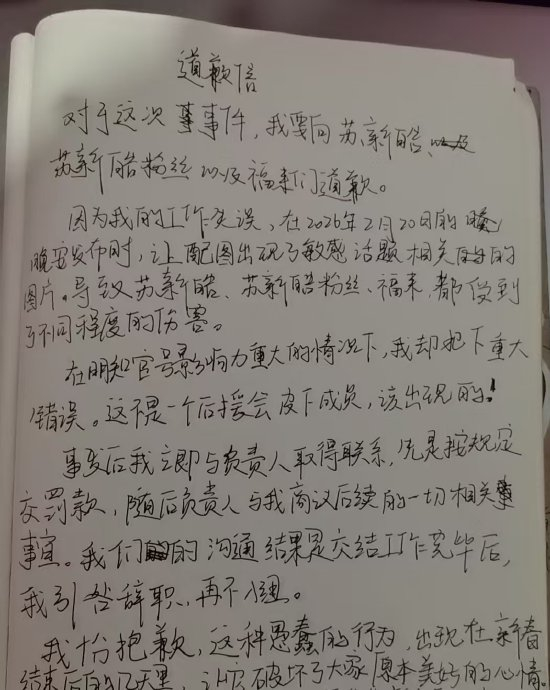 道歉信
对于这次事事件，我要向苏新皓、以及
苏新皓粉丝以及福来们道歉。
因为我的工作失误，在2026年2月20日的
晚安发布时，让配图出现了敏感话题相关的的
图片。导致苏新皓、苏新皓粉丝、福来都受到
了不同程度的伤害。
在明知官号影响力重大的情况下，我却犯下重大
错误。这不是一个后援会皮下成员，该出现的！
事发后我立即与负责人取得联系，先是按规定
交罚款，随后负责人与我商议后续的一切相关事
事宜。我们的沟通结果是交结工作完毕后，
我引咎辞职，再不入组。
我十分抱歉，这种愚蠢的行为，出现在新春
结束后的几天里，让它破坏了大家原本美好的心情。